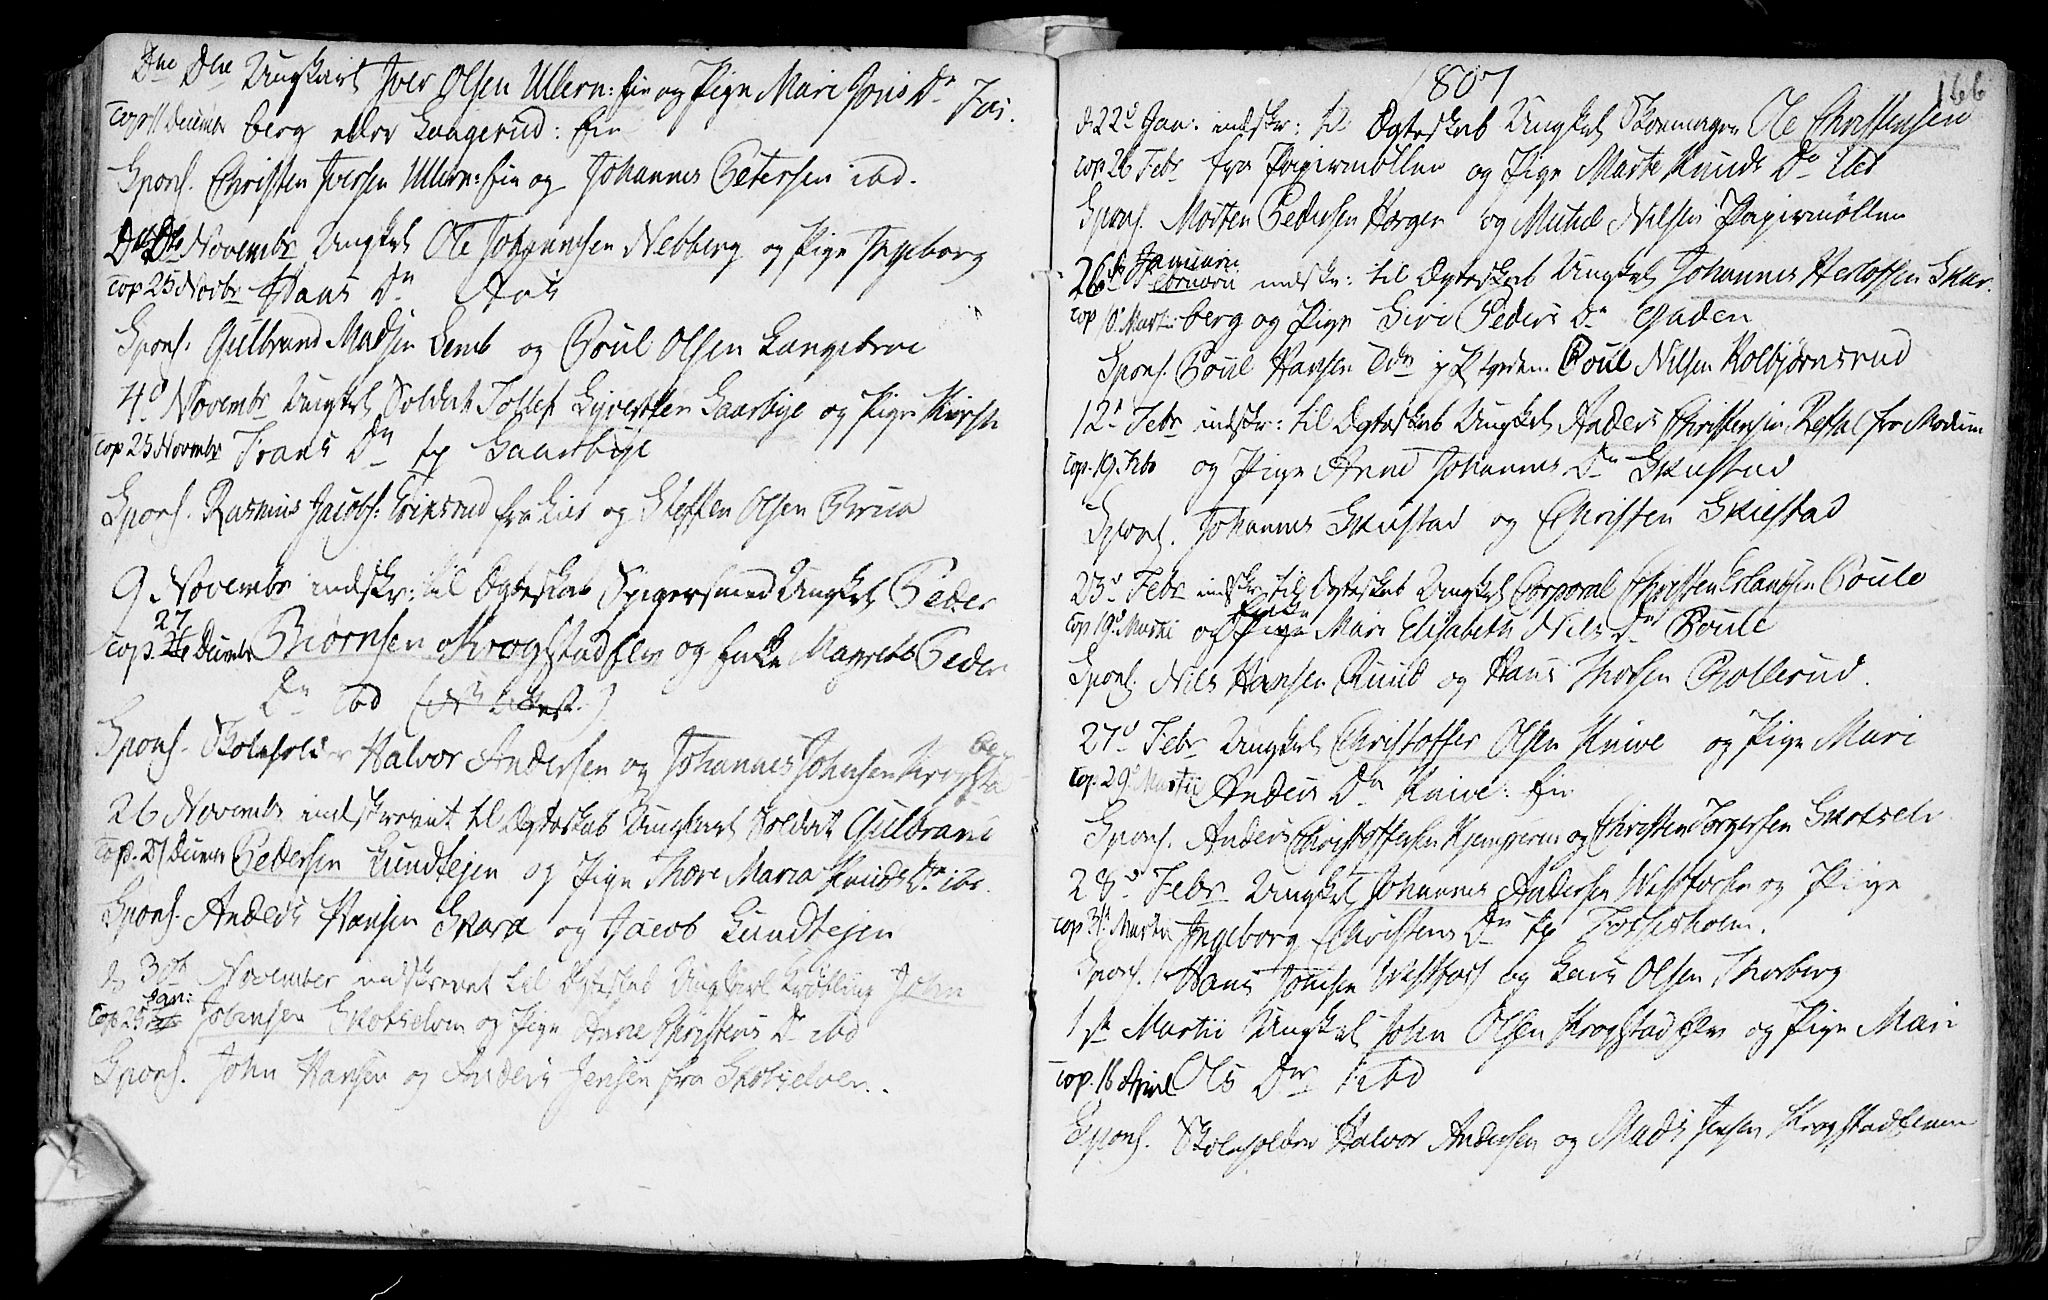 Dne Dne Ungkarl Iver Olsen Ullern: Eie og Pige Mari Jons Dr Fos.
Cop 11 Decembr berg eller Langerud: Eie
Spons. Christen Iversen Ullern: Eie og Johannes Petersen ibd.
Novembr Ungkl Ole Johannesen Nebberg og Pige Ingeborg
Cop 25 Novbr Hans Dr Aas
Spons. Gulbrand Madsen Lemb og Poul Olsen Langebroe
4d Novembr Ungkl Soldat Tollef Syversen Saasbye og Pige Kirsti
Cop 25 Novembr Frans Dr fr Saasbye
Spons. Rasmus Jacobs: fra Lier og Steffen Olsen Bruen
9 Novembr indskr: til Ægteskab Spigersmed Ungkl Peder
27
Cop. Decembr Biørnsen Krogstadelv og Enke Margrethe Peder
Dr ibd
Spons. Skoleholder Halvor Andersen og Johannes Johnsen Krogsta
26 Novembr indskrevet til Ægteskab Ungkarl Soldat Gulbrand
Cop. 27 Decembr Pedersen Lundtejen og Pige Thore Maria Knuds Dr ibd.
Spons. Anders Hansen Skara og Jacob Lundtejen
d 30te November indskrevet til Ægteskab Ungkarl John
Jan:
Cop 25 Johnsen Skotselven og Pige Anne Christens Dr ibd
Spons. John Hansen og Anders Jensen fra Skotselven.
1807
166
d. 22d Jan: indskr: til Ægteskab Ungkl Skoemager Ole Christensen
Cop 26 Febr fra Papirmøllen og Pige Marte Knuds Dr ibd
Spons. Morten Pedersen Horgen og Michel Nilsen Papirmøllen
Januari
26d Februari indskr: til Ægteskab Ungkl Johannes Herlofsen Skar-
Cop 10 Marti berg og Pige Siri Peders Dr Gaden
Spons. Poul Hansen Poul Nilsen Kolbjørnsrud
12d Febr indskr: til Ægteskab Ungkl Anders Christensen fra Modum
Cop. 19 Febr og Pige Anne Johannes Dr Skiestad
Spons. Johannes Skiestad og Christen Skiestad
23d Febr indskr til Ægteskab Ungkl Corporal Christen Erlandsen Boule
Enke
Cop 19d Martii og Pige Mari Elisabeth Nils Dr Boule
Spons. Nils Hansen Ruud og Hans Thosen Bollerud.
27d Febr Ungkl Christoffer Olsen Knive og Pige Mari
Cop. 29d Martii Anders Dr Knive: Eie
Spons. Anders Christoffersen og Christen Torgersen Skotselv
28d Febr Ungkl Johannes Andersen Westfossen og Pige
Cop 31 Martii Ingeborg Christens Dr fr Fosseholm.
Spons. Hans Jonsen Westfoss og Lars Olsen Thorberg
1ste Martii Ungkl John Olsen Krogstadelv og Pige Mari
Cop. 16 April Ols Dr ibd
Spons. Skoleholder Halvor Andersen og Mads Jensen Krogstadelven